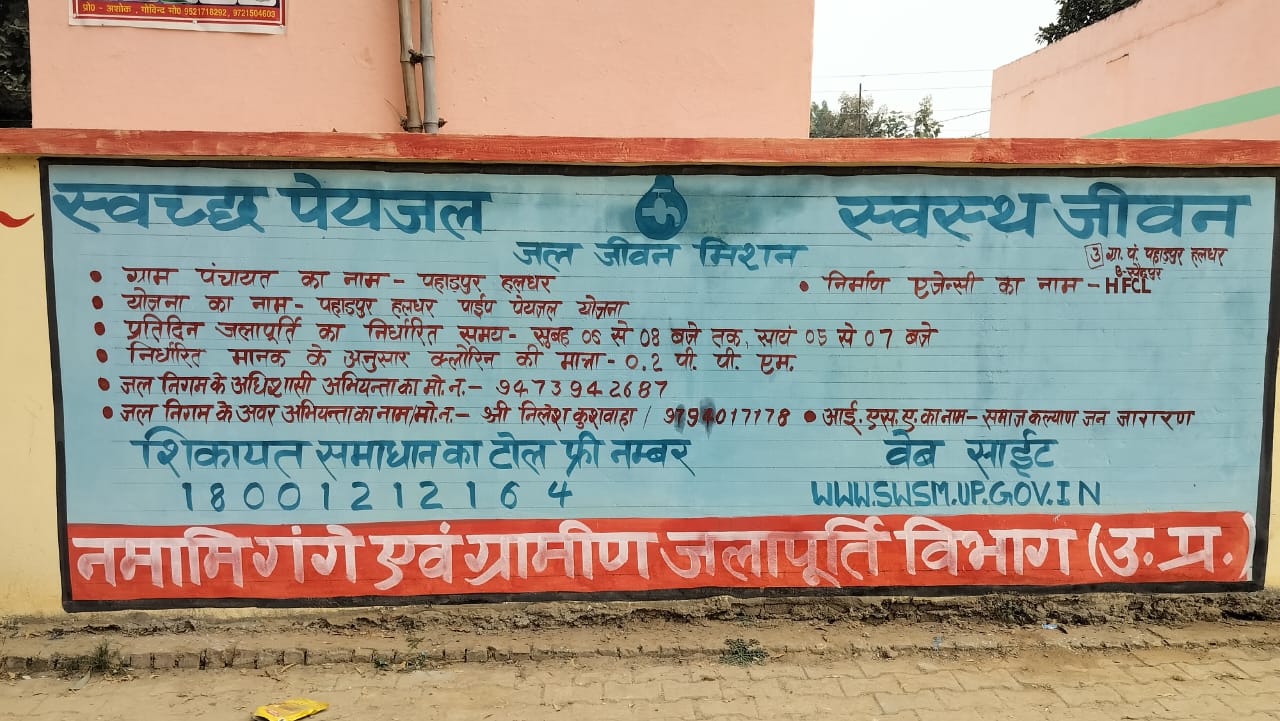 प्रो0 - अशोक , गोविन्द मो0 9521718292, 9721504603
स्वच्छ पेयजल
स्वस्थ जीवन
जल जीवन मिशन
3 ग्रा. पं. पहाड़पुर हलधर
• ग्राम पंचायत का नाम - पहाड़पुर हलधर
• निर्माण एजेन्सी का नाम - HFCL
• योजना का नाम - पहाड़पुर हलधर पाईप पेयजल योजना
• प्रतिदिन जलापूर्ति का निर्धारित समय - सुबह 06 से 08 बजे तक, सायं 05 से 07 बजे
• निर्धारित मानक के अनुसार क्लोरिन की मात्रा - 0.2 पी. पी. एम.
• जल निगम के अधिशासी अभियन्ता का मो.न. - 9473942687
• जल निगम के अवर अभियन्ता का नाम/मो.न. - श्री निलेश कुशवाहा / 9794017178 • आई.एस.ए. का नाम - समाज कल्याण जन जागरण
शिकायत समाधान का टोल फ्री नम्बर
वेब साईट
18001212164
WWW.SWSM.UP.GOV.IN
नमामि गंगे एवं ग्रामीण जलापूर्ति विभाग (उ.प्र.)